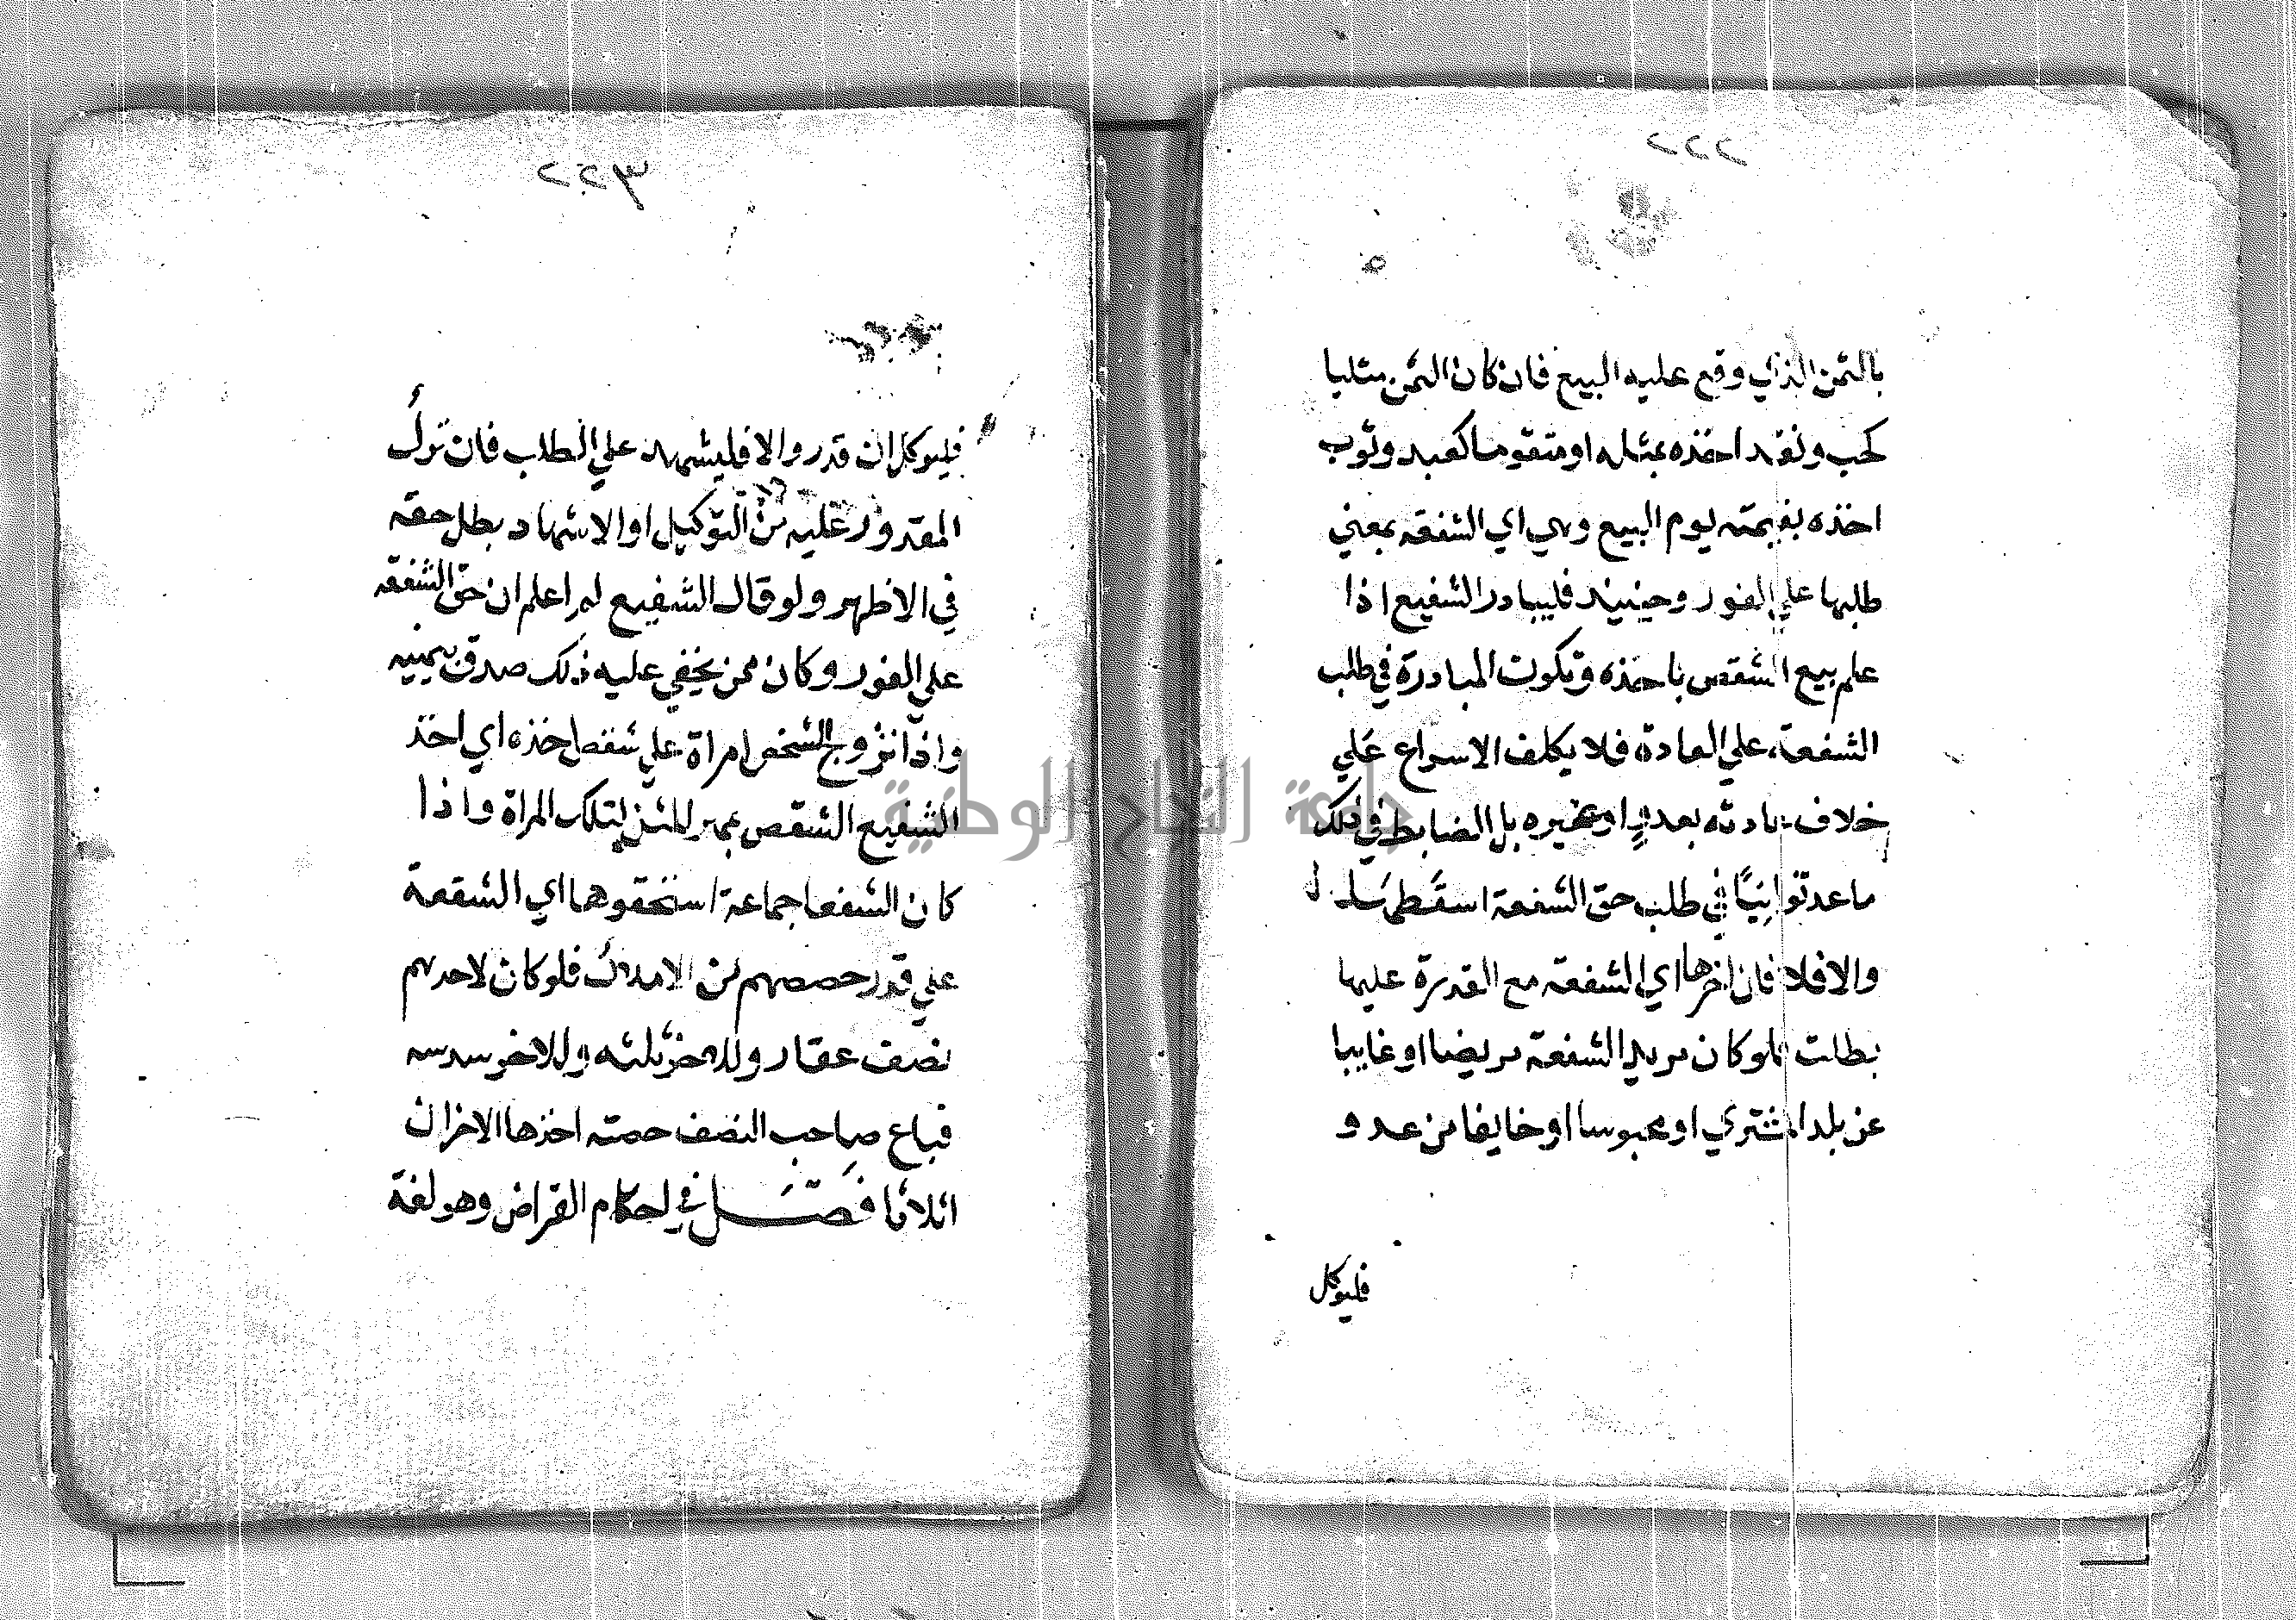 ٢٢٢
بالثمن الذي وقع عليه البيع فان كان الثمن مثليا
كحب ونقد اخذه بمثله او متقوما كعبد وثوب
اخذه بقيمته يوم البيع وهي اي الشفعه بمعني
طلبها علي الفور وحينيذ فليبادر الشفيع اذا
علم بيع الشقص باخذه وتكون المبادرة في طلب
الشفعة علي العادة فلا يكلف الاسراع علي
خلاف عادته بعدو او غيره بل الضابط في ذلك
ما عد توانيًا في طلب حق الشفعة اسقط
والافلا فان اخرها اي الشفعة مع القدرة عليها
بطلت فلو كان مريد الشفعة مريضا او غايبا
عن بلد المشتري او محبوسا او خايفا من عدو
فليوكل
٢٢٣
فليوكل ان قدر والا فليشهد علي الطلب فان ترك
المقدور عليه من التوكيل او الاشهاد بطل حقه
في الاظهر ولو قال الشفيع لم اعلم ان حق الشفعه
علي الفور وكان ممن يخفي عليه ذلك صدق بيمينه
واذا تزوج الشخص امراة علي شقص اخذه اي اخذ
الشفيع الشقص بمهر المثل لتلك المراة واذا
كان الشفعا جماعة استحقوها اي الشفعة
علي قدر حصصهم من الاملاك فلو كان لاحدهم
نصف عقار وللاخر ثلثه وللاخر سدسه
فباع صاحب النصف حصته اخذها الاخران
اثلاثا فصل في احكام القراض وهو لغة
جامعة النجاح الوطنية